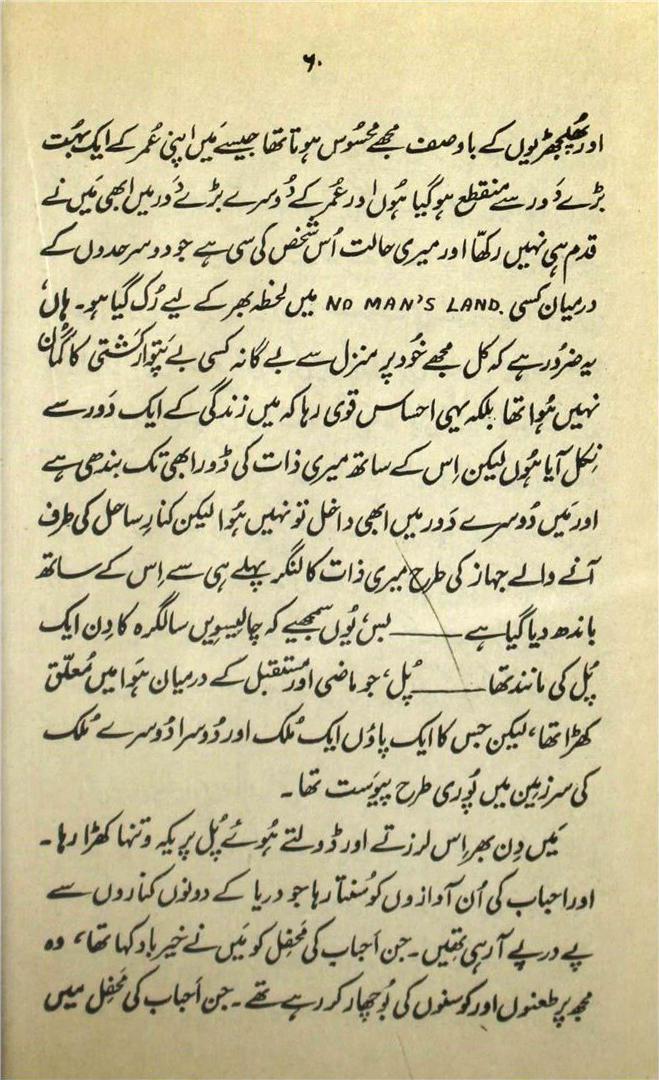 ۶۰
اور پھلجھڑیوں کے باوصف مجھے محسُوس ہوتا تھا جیسے مَیں اپنی عُمر کے ایک بہُت
بڑے دَور سے منقطع ہو گیا ہُوں اور عُمر کے دُوسرے بڑے دَور میں ابھی مَیں نے
قدم ہی نہیں رکھّا اور میری حالت اُس شخص کی سی ہے جو دو سرحدوں کے
درمیان کسی NO MAN'S LAND. میں لحظہ بھر کے لیے رُک گیا ہو۔ ہاں،
یہ ضرُور ہے کہ کل مجھے خُود پر منزل سے بے گانہ کسی بے پتوار کشتی کا گُمان
نہیں ہُوا تھا بلکہ یہی احساس قوی رہا کہ میں زندگی کے ایک دَور سے
نِکل آیا ہُوں لیکن اِس کے ساتھ میری ذات کی ڈور ابھی تک بندھی ہے
اور مَیں دُوسرے دَور میں ابھی داخل تو نہیں ہُوا لیکن کنارِ ساحل کی طرف
آنے والے جہاز کی طرح میری ذات کا لنگر پہلے ہی سے اِس کے ساتھ
باندھ دیا گیا ہے ـــــ بس یُوں سمجھیے کہ چالیسویں سالگرہ کا دِن ایک
پُل کی مانند تھا ـــــ پُل، جو ماضی اور مستقبل کے درمیان ہَوا میں مُعلّق
کھڑا تھا، لیکن جس کا ایک پاؤں ایک مُلک اور دُوسرا دُوسرے مُلک
کی سرزمین میں پُوری طرح پیوَست تھا۔
مَیں دِن بھر اِس لرزتے اور ڈولتے ہُوئے پُل پر یکہ و تنہا کھڑا رہا۔
اور احباب کی اُن آوازوں کو سُنتا رہا جو دریا کے دونوں کناروں سے
پے در پے آ رہی تھیں۔ جن اَحباب کی مَحفِل کو مَیں نے خیر باد کہا تھا، وہ
مجھ پر طعنوں اور کوسنوں کی بُوچھار کر رہے تھے۔ جن اَحباب کی مَحفِل میں